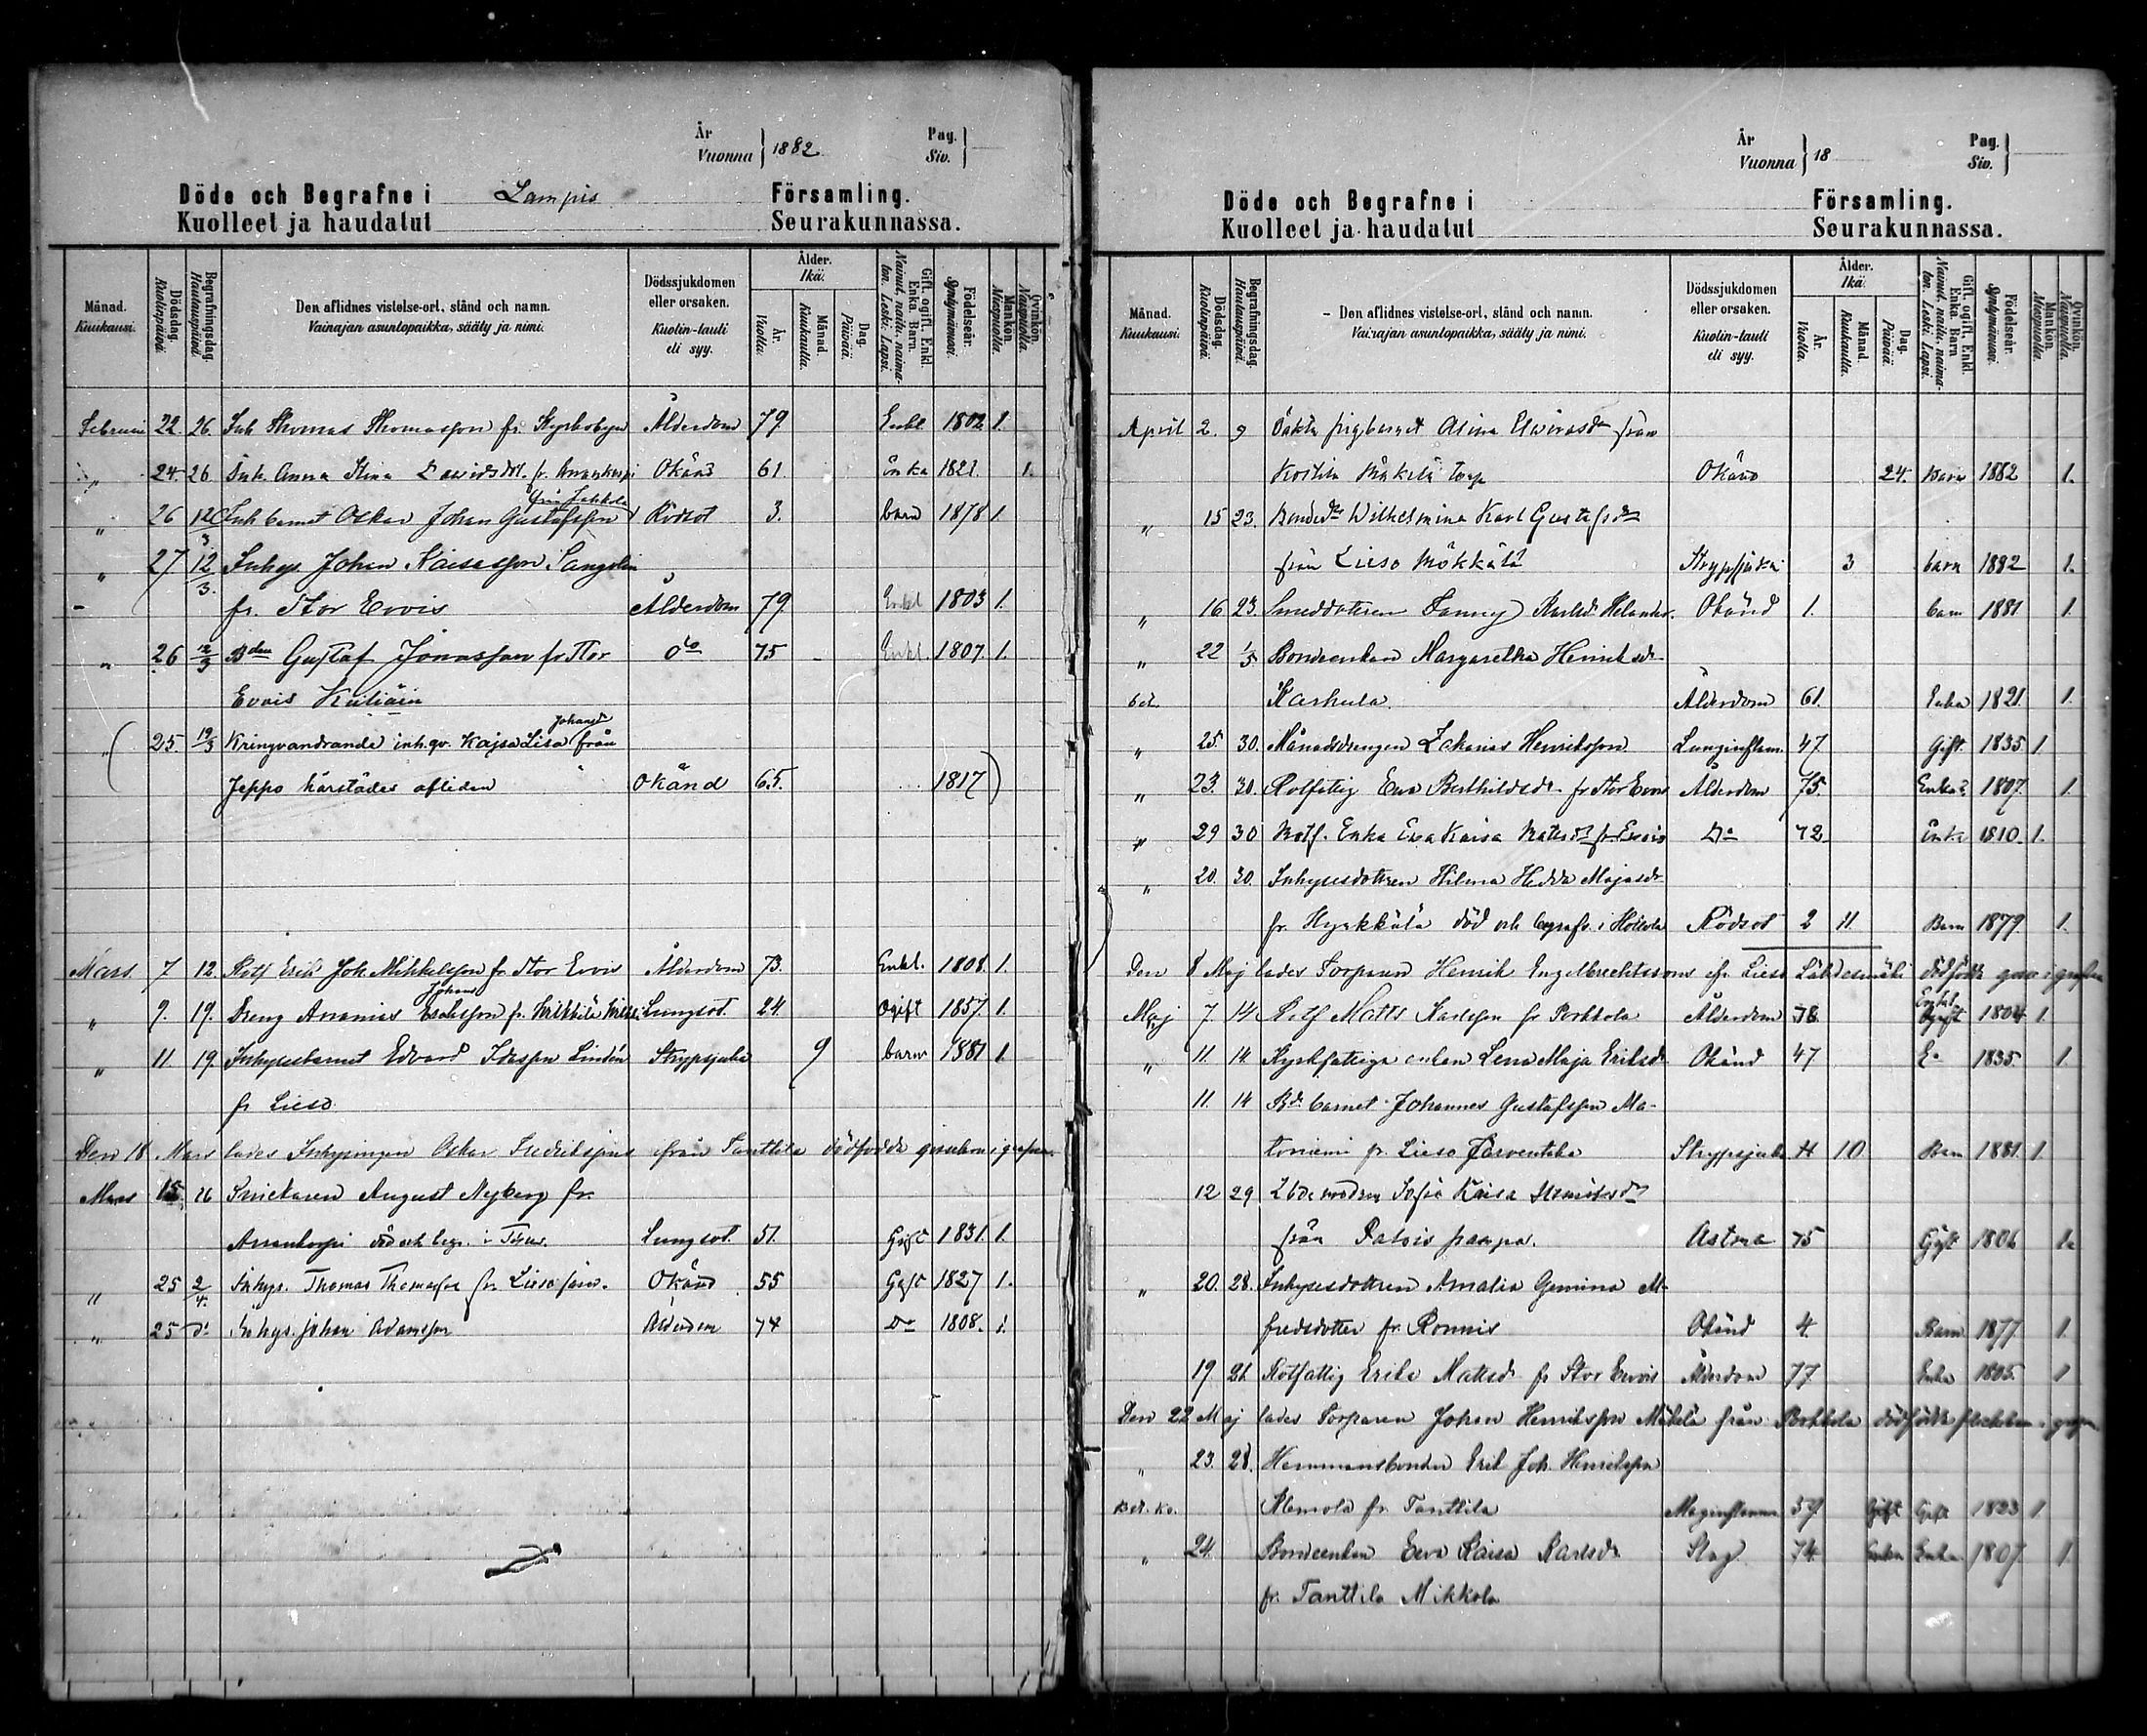 År
Vuonna } 1882
Pag.
Siv. }
Döde och Begrafne i Lampis Församling.
Kuolleet ja haudatut Seurakunnassa.
Månad. Kuukausi.
Dödsdag. Kuolinpäivä.
Begrafningsdag. Hautauspäivä.
Den aflidnes vistelse-ort, stånd och namn.
Vainajan asuntopaikka, sääty ja nimi.
Dödssjukdomen eller orsaken.
Kuolin-tauti eli syy.
Ålder. Ikä.
År. Vuotta.
Månad. Kuukautta.
Dag. Päivää.
Gift, ogift, Enkl. Enka Barn.
Nainut, naitu, naimaton. Leski. Lapsi.
Födelseår. Syntymävuosi.
Mankön. Miespuolia.
Qvinkön. Naispuolia.
Februari 22. 26. Inh Thomas Thomasson fr. Kyrkobyn Ålderdom 79 Enkl 1802 1.
" 24. 26 Inh. Anna Stina Davidsdot. fr. Anankorpi Okänd 61. Enka 1821. 1.
från Jahkola
" 26 12/3 Inh barnet Oskar Johan Gustafsson Rödsot 3. barn 1878 1.
" 27. 12/3. Inhys. Johan Kaisasson Sangolin
fr. Stor Evois Ålderdom 79 Enkl 1803 1.
" 26 12/3 Bden Gustaf Jonasson fr Stor do 75 Enkl. 1807. 1.
Evois Kiiliäin
Johansdr
" ( 25 19/3 Kringvandrande inh.qv. Kajsa Lisa från
Jeppo härstädes afliden Okänd 65. 1817 )
Mars 7 12. Rotf Erik Joh. Mikkelsson fr Stor Evois Ålderdom 73. Enkl. 1808. 1.
Johans
" 9. 19. Dreng Ananias Esaiasson fr. Lungsot. 24. Ogift 1857. 1.
" 11. 19. Inhysesbarnet Edvard Idasson Lindén Strypsjuka 9 barn 1881 1.
fr Lieso.
Den 18 Mars lades Inhysingen Oskar Fredrikssons ifrån Tanttila dödfödda gossebarn i grafven.
Mars 15 26 Snickaren August Nyberg fr.
Anankorpi död och begr. i Lungsot. 51. Gift 1831. 1.
" 25 2/4. Inhys. Thomas Thomasson fr. Lieso Okänd 55 Gift 1827 1.
" 25 do Inhys. Johan Adamsson Ålderdom 74 Do 1808. 1.
År
Vuonna } 18
Pag.
Siv. }
Döde och Begrafne i Församling.
Kuolleet ja haudatut Seurakunnassa.
Månad. Kuukausi.
Dödsdag. Kuolinpäivä.
Begrafningsdag. Hautauspäivä.
Den aflidnes vistelse-ort, stånd och namn.
Vainajan asuntopaikka, sääty ja nimi.
Dödssjukdomen eller orsaken.
Kuolin-tauti eli syy.
Ålder. Ikä.
År. Vuotta.
Månad. Kuukautta.
Dag. Päivää.
Gift, ogift, Enkl. Enka Barn
Nainut, naitu, naimaton. Leski. Lapsi.
Födelseår. Syntymävuosi.
Mankön. Miespuolia.
Qvinkön. Naispuolia.
April 2. 9 Oäkta pigbarnet Alina Elwirasdr från
Kostila Mäkelä torp Okänd 24. Barn 1882 1.
" 15 23. Bondedr Wilhelmina Karl Gustafsdr
från Lieso Mökkälä Strypsjuka 3 barn 1882 1.
" 16 23. Smeddotteren Fanny Karlsdr Helander. Okänd 1. barn 1881 1.
" 22 1/5 Bondeenkan Margaretha Henriksdr
Karhula. Ålderdom 61. Enka 1821. 1.
" 25. 30. Månadsdrengen Zakarias Henriksson Lunginflam. 47 Gift. 1835 1.
" 23. 30. Rotfattig Eva Berthildsdr fr Stor Evois Ålderdom 75. Enka 1807. 1.
" 29 30 Rotf. Enka Eva Kaisa Mattsdr fr Evois Do 72 Enka 1810. 1.
" 20. 30. Inhysesdottren Hilma Hedda Majasdr
fr. Kyrkkälä död och begrafv. i Hollola Rödsot 2 11. Barn 1879 1.
Den 8 Maj lades Torparen Henrik Engelbrechtssons fr. Lieso Lähdesmäki dödfödda gosse i grafven
Enkl
Maj 7. 14. Rotf Matts Karlsson fr Porkkola Ålderdom 78. Ogift 1804 1.
" 11. 14 Kyrkfattiga enkan Lena Maja Eriksdr Okänd 47 E 1835. 1.
11. 14 Bde barnet Johannes Gustafsson Ma-
toniemi fr. Lieso Järventaka Strypsjuka 10 Barn 1881. 1.
12 29 modren Sofia Kaisa
från Patois pampa. Astma 75 Gift 1806 1.
" 20. 28. Inhysesdottren Amalia Gemina Al-
fredsdotter fr. Ronnis Okänd 4. Barn 1877 1.
19 21. Rotfattig Erika Mattsd. fr Stor Evois Ålderdom 77 Enka 1805. 1
Den 22 Maj lades Torparen Johan Henriksson Mäkelä från Porkkola dödfödda flickebarn i grafven
" 23. 28. Hemmansbonden Erik Joh. Henriksson
Klemola fr. Tanttila Maginflamm 59 Gift Gift 1823 1
" 24. Bondeenkan Eeva Kaisa Karlsdr. Slag 74 Enka Enka 1807 1.
fr. Tanttila Mikkola